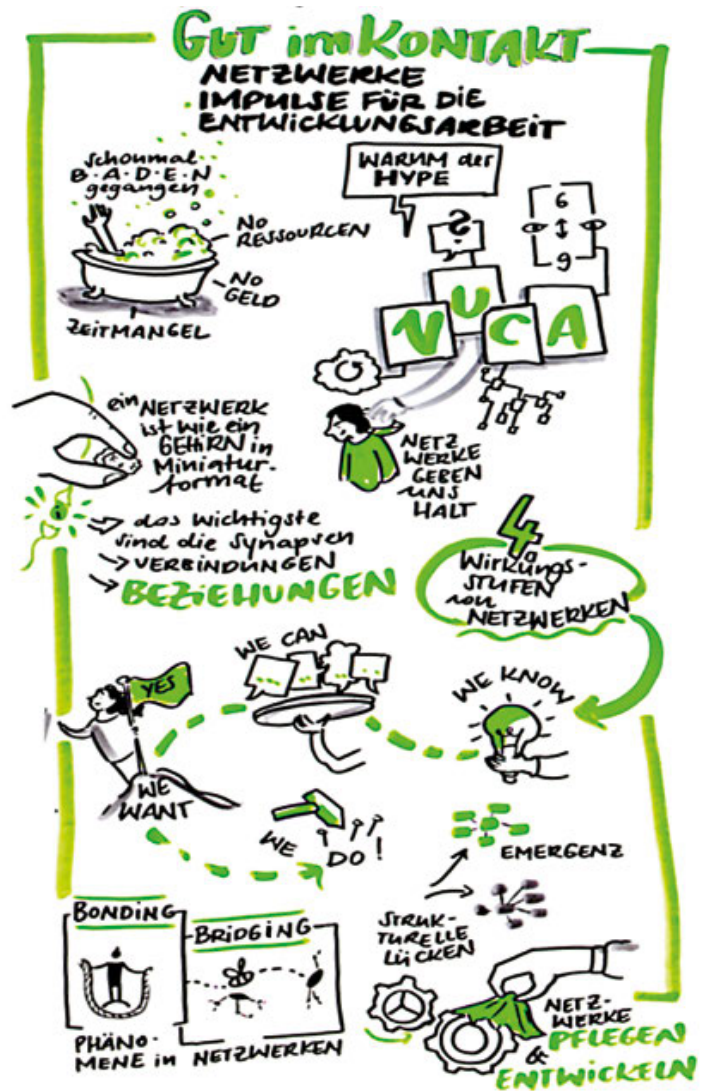 GUT im KONTAKT
NETZWERKE
IMPULSE FÜR DIE
ENTWICKLUNGSARBEIT
schonmal
B·A·D·E·N
gegangen
NO
RESSOURCEN
NO
GELD
ZEITMANGEL
WARUM der
HYPE
?
6
9
VUCA
NETZ
WERKE
GEBEN
UNS
HALT
ein NETZWERK
ist wie ein
GEHIRN in
Miniatur-
format
das wichtigste
sind die Synapsen
VERBINDUNGEN
BEZIEHUNGEN
4
Wirkungs-
STUFEN
von
NETZWERKEN
WE KNOW
WE CAN
YES
WE
WANT
WE DO!
EMERGENZ
STRUK-
TURELLE
LÜCKEN
BONDING
BRIDGING
PHÄNO-
MENE in NETZWERKEN
NETZ-
WERKE
PFLEGEN
&
ENTWICKELN